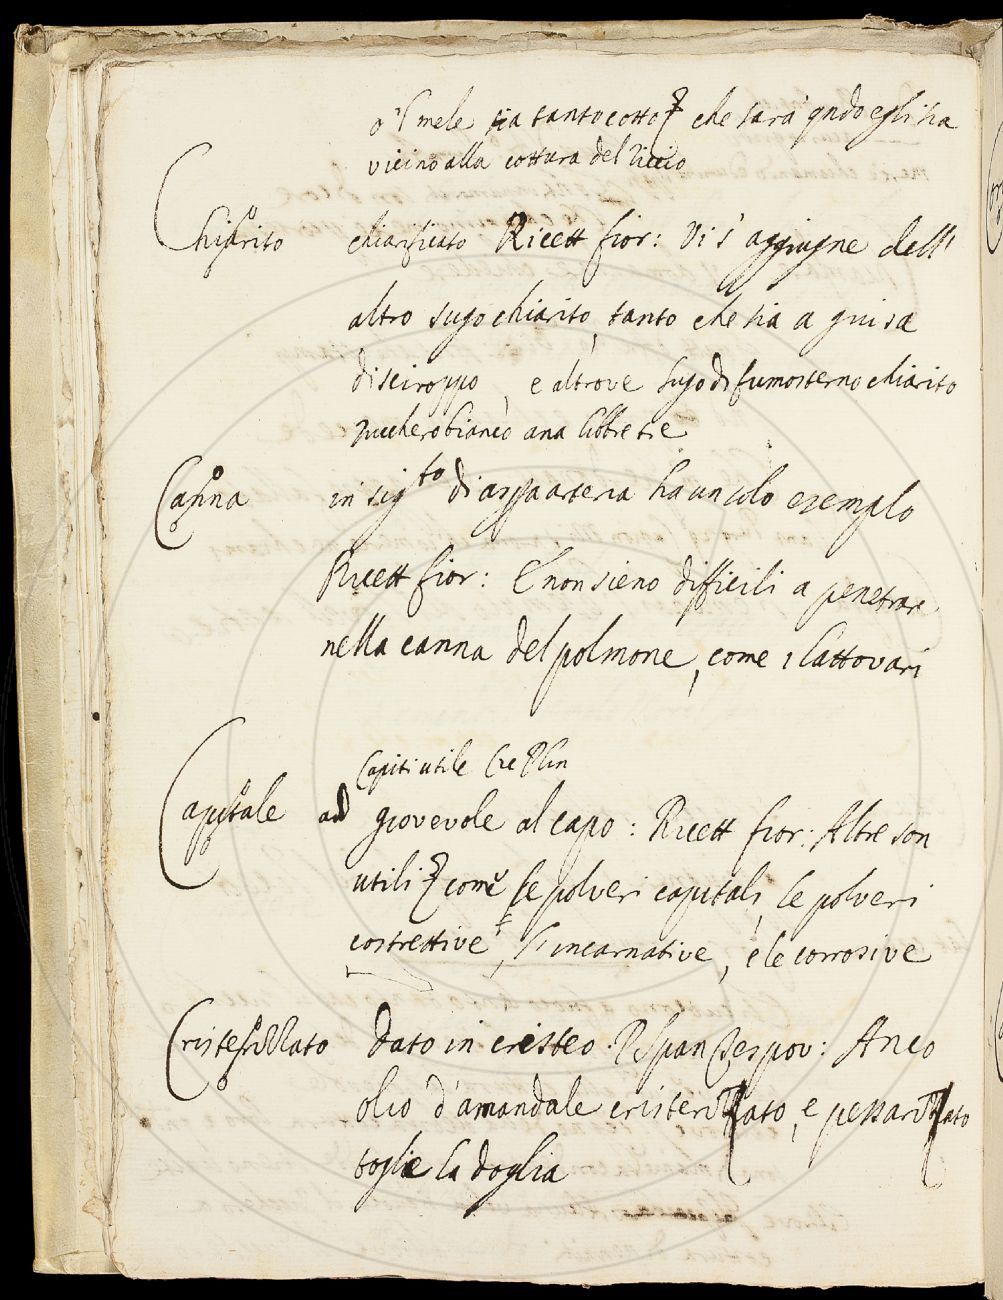 o 'l mele sia tanto cotto che sarà qndo egli sia
vicino alla cottura del
Chiarito chiarificato Ricett fior: Vi s' aggiugne dell'
altro sugo chiarito, tanto che sia a guisa
di sciroppo, e altrove sugo di fumosterno chiarito
zucchero bianco ana libbre tre
Canna in sigto di aspra arteria ha un solo esemplo
Ricett fior: E non sieno difficili a penetrar
nella canna del polmone, come i lattovari
Capiti utile Cre Plin
Capitale ad giovevole al capo: Ricett fior: Altre son
utili come le polveri capitali, le polveri
costrettive, l'incarnative, e le corrosive
Cristerizzato dato in cristeo. P Span Tes pov: Anco
olio d'amandole cristerizzato, e pessarizzato
toglie la doglia